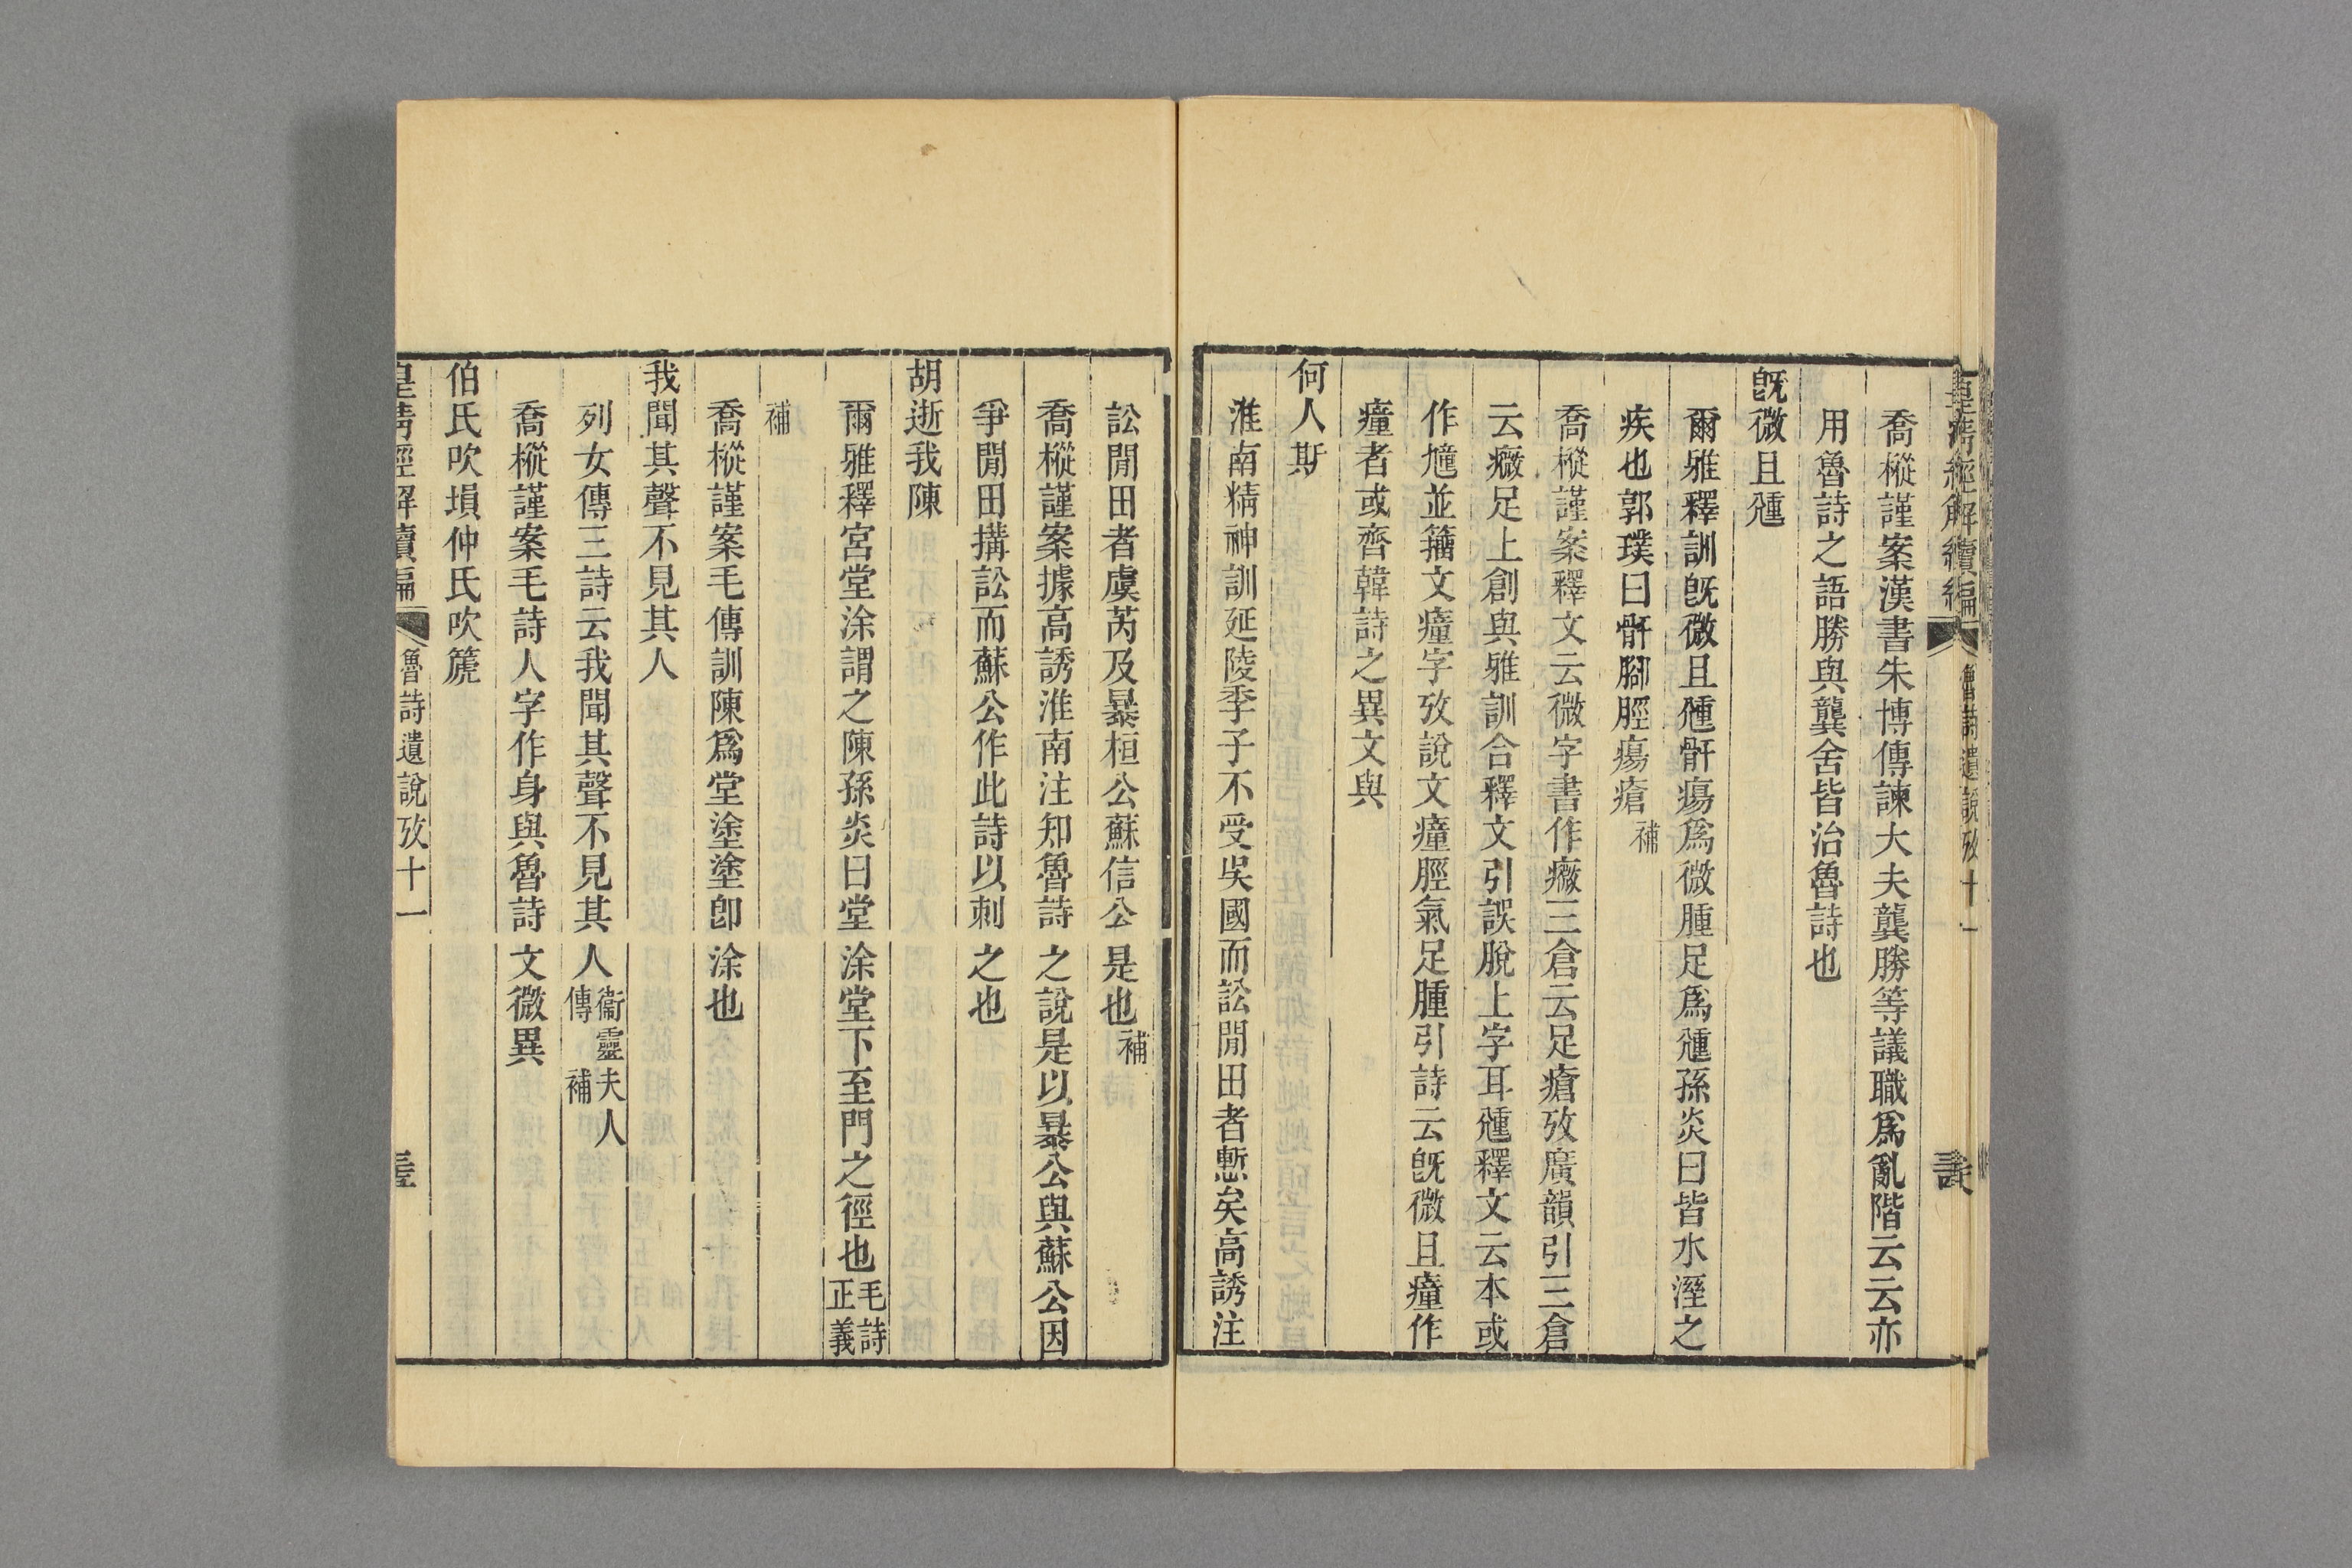 皇清經解續編 魯詩遺說攷十一
喬樅謹案漢書朱博傳諫大夫龔勝等議職爲亂階云云亦
用魯詩之語勝與龔舍皆治魯詩也
旣微且尰
爾雅釋訓旣微且尰骭瘍爲微腫足爲尰孫炎曰皆水溼之
疾也郭璞曰骭腳脛瘍瘡補
喬樅謹案釋文云微字書作癓三倉云足瘡攷廣韻引三倉
云癓足上創與雅訓合釋文引誤脫上字耳尰釋文云本或
作㿈並籀文瘇字攷說文瘇脛氣足腫引詩云旣微且瘇作
瘇者或齊韓詩之異文與
何人斯
淮南精神訓延陵季子不受吳國而訟閒田者慙矣高誘注
訟閒田者虞芮及暴桓公蘇信公是也補
喬樅謹案據高誘淮南注知魯詩之說是以暴公與蘇公因
爭閒田搆訟而蘇公作此詩以刺之也
胡逝我陳
爾雅釋宮堂涂謂之陳孫炎曰堂涂堂下至門之徑也毛詩正義
補
喬樅謹案毛傳訓陳爲堂塗塗卽涂也
我聞其聲不見其人
列女傳三詩云我聞其聲不見其人衞靈夫人傳補
喬樅謹案毛詩人字作身與魯詩文微異
伯氏吹塤仲氏吹篪
皇清經解續編 魯詩遺說攷十一